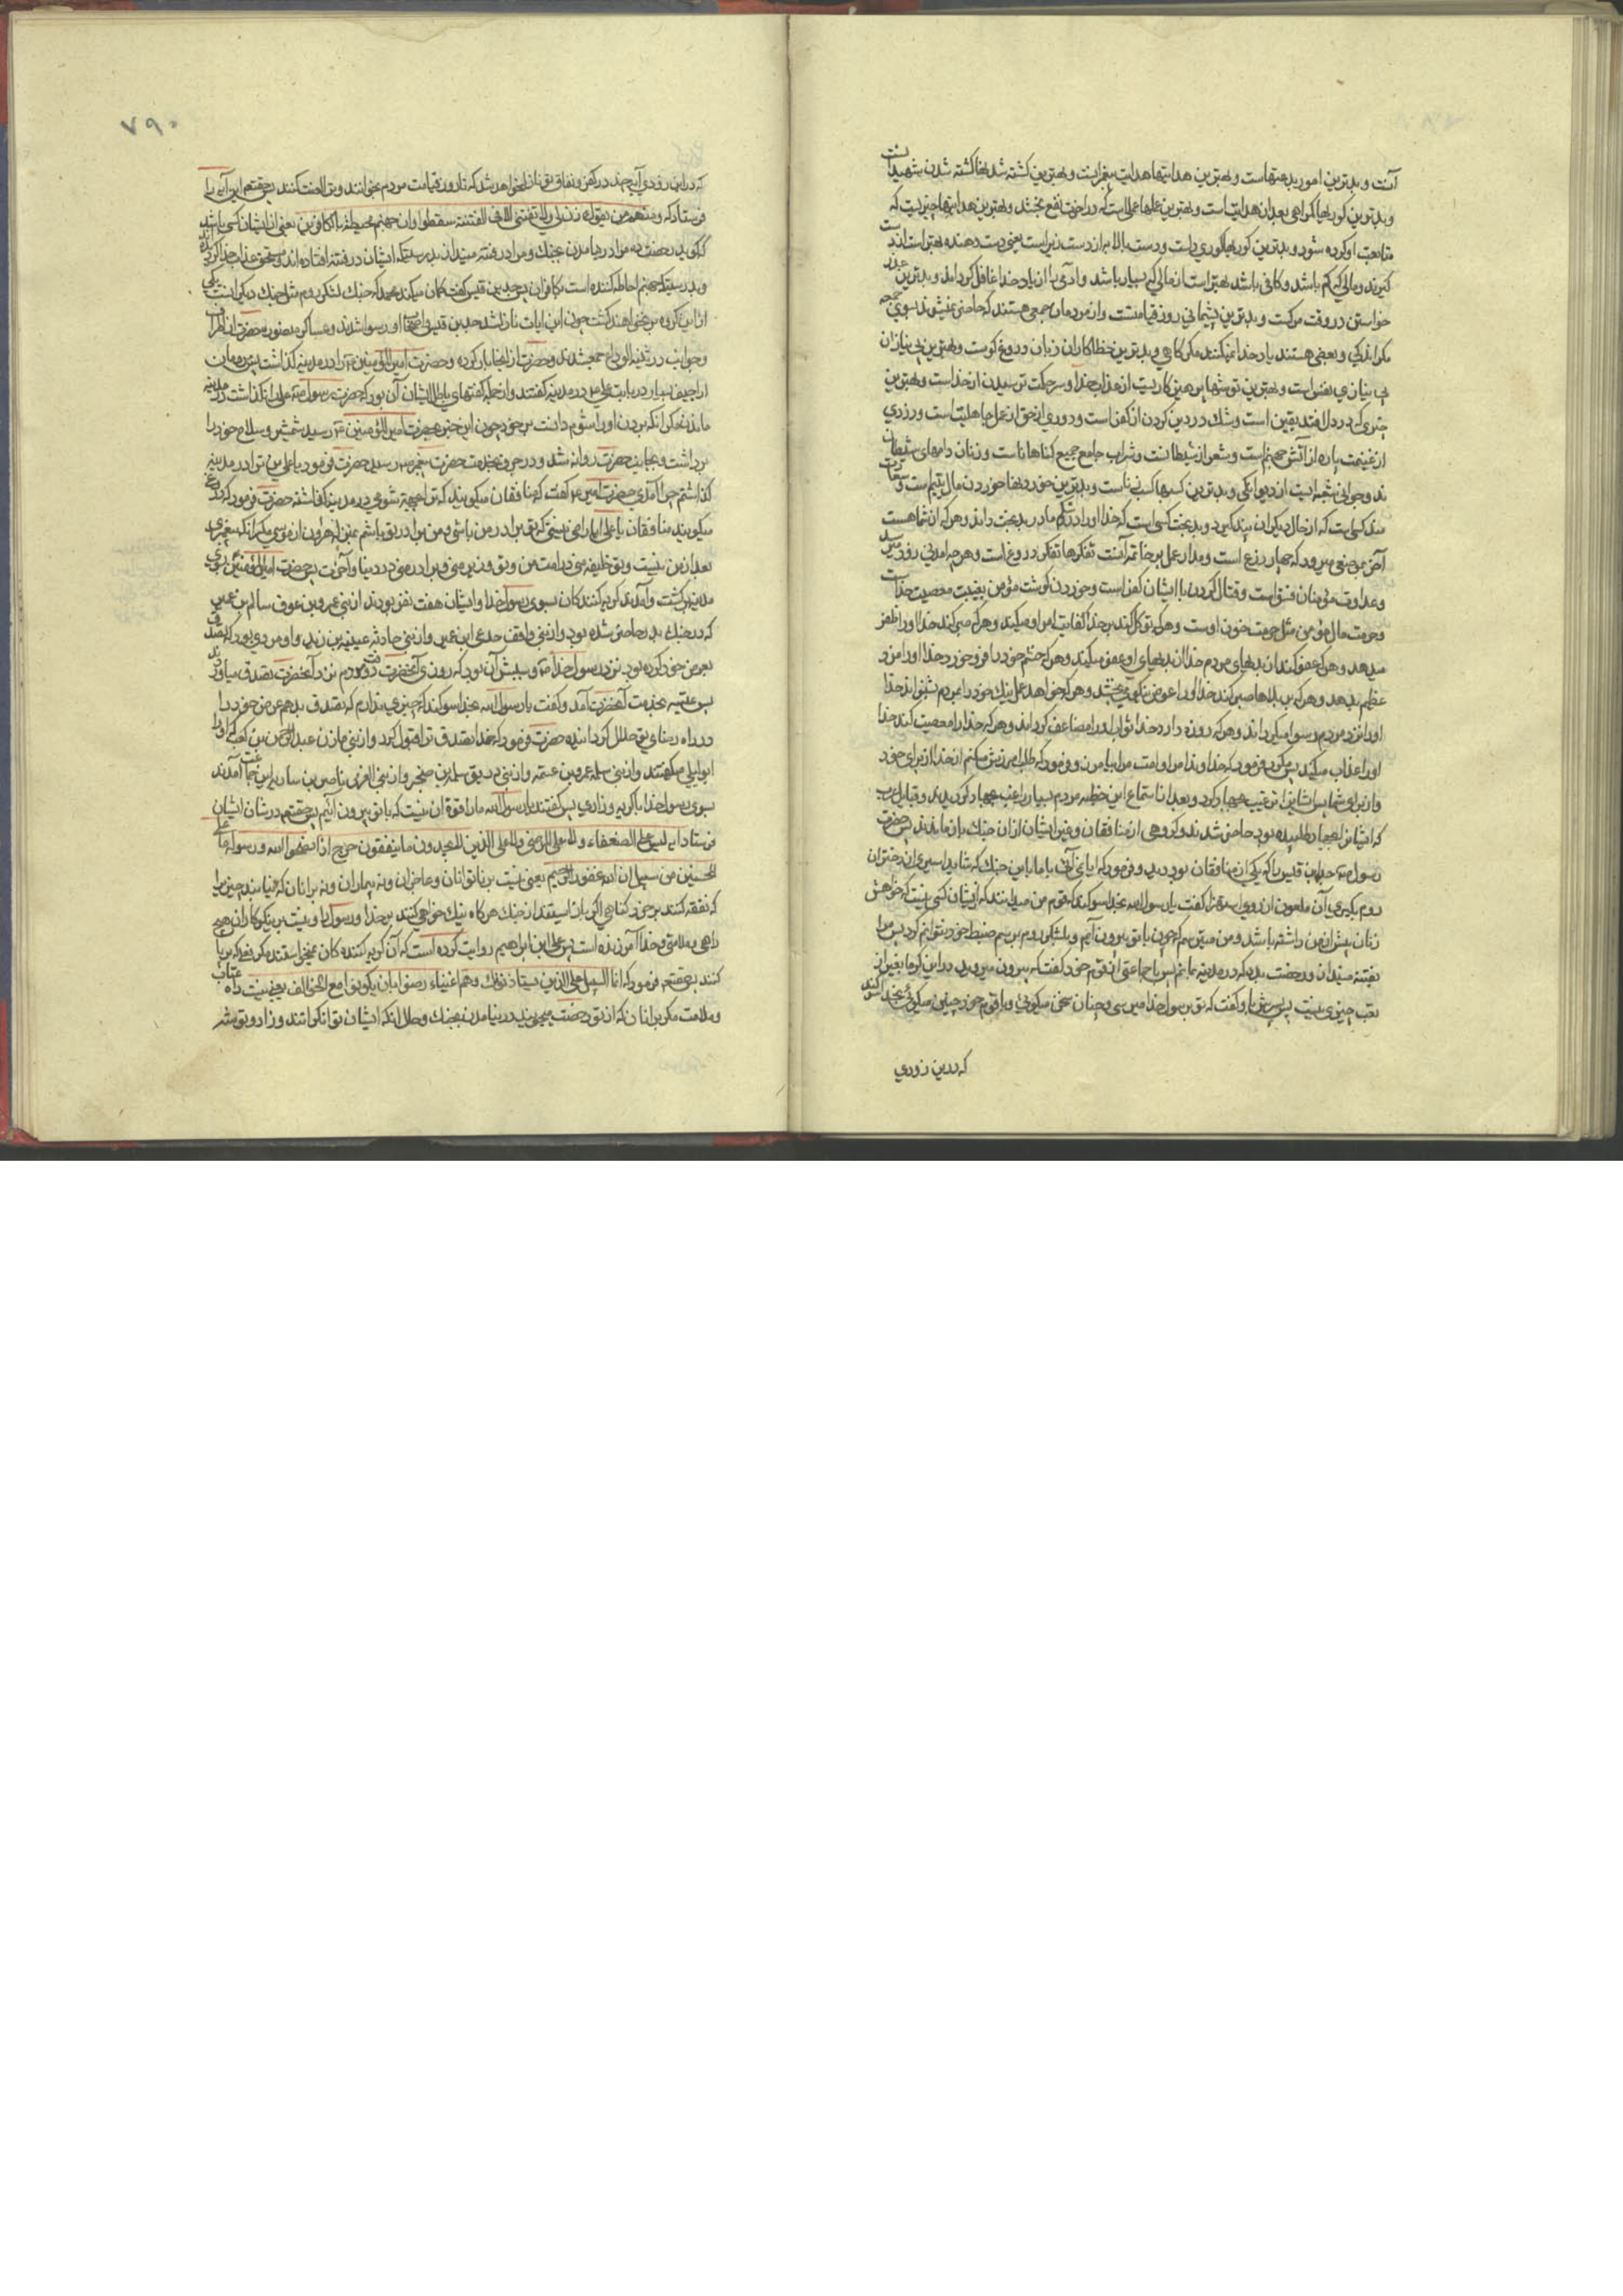 آنست و بدترین امور بدعتهاست و بهترین هدایتها هدایت پیغمبرانست و بهترین کشته شدنها کشته شدن شهیدانست
و بدترین کوریها کمراهی بعد از هدایت است و بهترین عملها عملی است که در آخرت نفع بخشد و بهترین هدایتها چیزیست که
متابعت او کرده شود و بدترین کوریها کوری دلست و دست بالا به از دست زیر است یعنی دست دهنده بهتر است از دست
کیرنده و مالی که کم باشد و کافی باشد بهتر است از مالی که بسیار باشد و آدمی را از یاد خدا غافل کرداند و بدترین عذر
خواستن در وقت مرکست و بدترین پشیمانی روز قیامتست و از مردمان جمعی هستند که حاضر نمیشوند بسوی جمعه
مکر اندکی و بعضی هستند یاد خدا نمیکنند مکر کاهی و بدترین خطاکاران زبان دروغ کوست و بهترین بی نیازان
بی نیازی نفس است و بهترین توشها پرهیزکاریست از عذاب خدا و سر حکمت ترسیدن از خداست و بهترین
چیزی که در دل افتد یقین است و شک در دین کردن از کفر است و دوری از حق از عمل جاهلیت است و دزدی
از غنیمت پاره از آتش جهنم است و شعر از شیطانست و شراب جامع جمیع کناهانست و زنان دامهای شیطان
ند و جوانی شعبه ایست از دیوانکی و بدترین کسبها کسب ریاست و بدترین خوردنها خوردن مال یتیم است و سعادت
مند کسیست که از حال دیکران پند کیرد و بدبخت کسی است که خدا او را در شکم مادر بدبخت داند و هر که از شما هست
آخر بموضعی میرود که چهار ذرع است و مدار عمل بر خاتمه آنست تفکرها تفکر دروغ است و هر چه آمدنی زود میرسد
و عداوت مؤمنان فسق است و قتال کردن با ایشان کفر است و خوردن کوشت مؤمن بغیبت معصیت خداست
و حرمت مال مؤمن مثل حرمت خون اوست و هر که توکل کند بر خدا کفایت امر او میکند و هر که صبر کند خدا او را ظفر
میدهد و هر که عفو کند از بدیهای مردم خدا از بدیهای او عفو میکند و هر که خشم خود را فرو خورد خدا او را مزد
عظیم بدهد و هر که بر بلاها صبر کند خدا او را عوض نیکوی بخشد و هر که خواهد عمل نیک خود را بمردم بشنواند خدا
او را نزد مردم رسوا میکرداند و هر که روزه دارد خدا ثواب او را مضاعف کرداند و هر که خدا را معصیت کند خدا
او را عذاب میکند پس مکرر فرمود که خداوندا مرا و امت مرا بیامرز و فرمود که طلب آمرزش میکنم از خدا از برای خود
و از برای شما پس ایشانرا ترغیب بجهاد کرد و بعد از استماع این خطبه مردم بسیار راغب بجهاد کردیدند و قبایل عرب
که ایشانرا بجهاد طلبیده بود حاضر شدند و کروهی از منافقان و غیر ایشان از آن جنک باز ماندند پس حضرت
رسول جد بن قیس را که یکی از منافقان بود دید و فرمود که آیا نمی آئی با ما باین جنک که شاید اسیری از دختران
روم بکیری آن ملعون از روی استهزا کفت یا رسول الله بخدا سوکند که قوم من میدانند که از ایشان کسی نیست که خواهش
زنان بیش از من داشته باشد و من میترسم که چون با تو بیرون آیم و بلشکر روم برسم ضبط خود نتوانم کرد پس مرا
بفتنه مینداز و رخصت بده که در مدینه بمانم پس با جماعتی از قوم خود کفت که بیرون میروید در این کرما بغیر از
تعب چیزی نیست پس پسرش باو کفت که تو بر رسول خدا میرسی و چنان سخن میکوئی و با قوم خود چنین میکوئی بخدا سوکند
که در این زودی
۷۹۰
که در این زودی آیه چند در کفر و نفاق تو نازل خواهد شد که تا روز قیامت مردم بخوانند و تو را لعنت کنند پس حقتعالی این آیه را
فرستاد که و منهم من یقول ائذن لی و لا تفتنی الا فی الفتنة سقطوا و ان جهنم لمحیطة بالکافرین یعنی از ایشان کسی باشد
که کوید رخصت ده مرا در نیامدن بجنک و مرا در فتنه مینداز بدرستیکه ایشان در فتنه افتاده اند و مستحق عذاب خدا کردیده اند
و بدرستیکه جهنم احاطه کننده است بکافران پس جد بن قیس کفت کمان میکند محمد که جنک لشکر روم مثل جنک دیکرانست یکی
از این کروه بر نخواهند کشت چون این آیات نازل شد جد بن قیس و اصحاب او رسوا شدند و عساکر منصوره حضرت از اطراف
و جوانب در ثنیة الوداع جمع شدند و حضرت از آنجا بار کرده و حضرت امیر المؤمنین را در مدینه کذاشت پس مردمان
اراجیف بسیار در باب علی در مدینه کفتند و از جمله کفتهای باطل ایشان آن بود که حضرت رسول علی را نکذاشت در مدینه
مکر آنکه بردن او را شوم دانست بر خود چون این خبر بحضرت امیر المؤمنین رسید شمشیر و سلاح خود را
برداشت و بجانب حضرت روانه شد و در جرف بخدمت حضرت پیغمبر رسید حضرت فرمود یا علی من تو را در مدینه
کذاشتم چرا آمدی حضرت امیر کفت که منافقان میکویند که تو را بجهة شومی در مدینه کذاشته حضرت فرمود که دروغ
میکویند منافقان یا علی آیا راضی نیستی که تو برادر من باشی و من برادر تو باشم بمنزله هارون از موسی مکر آنکه پیغمبری
بعد از من نیست و تو خلیفه منی در امت من و تو وزیر منی و برادر منی در دنیا و آخرت پس حضرت امیر المؤمنین بسوی
مدینه برکشت و آمدند کریه کنندکان بسوی رسول خدا و ایشان هفت نفر بودند از بنی عمرو بن عوف سالم بن عمیر
که در جنک بدر حاضر شده بود و از بنی واقف هدمی ابن عمیر و از بنی حارثه عیینه بن زید و او مردی بود که تصدق
بعرض خود کرده بود نزد رسول خدا و سببش آن بود که روزی آنحضرت مردم نزد آنحضرت تصدق میاوردند
پس علیه بخدمت آنحضرت آمد و کفت یا رسول الله بخدا سوکند که چیزی ندارم که تصدق بدهم عرض خود را
در راه رضای تو حلال کردانیده حضرت فرمود که خدا تصدق ترا قبول کرد و از بنی مازن عبد الرحمن بن کعب که او را
ابو لیلی میکفتند و از بنی سلمه عمرو بن عتمه و از بنی زریق سلمة بن صخر و از بنی العزی ناصر بن ساریه این جماعت آمدند
بسوی رسول خدا با کریه و زاری پس کفتند یا رسول الله ما را قوة آن نیست که با تو بیرون آئیم پس حقتعالی در شان ایشان
فرستاد آیه لیس علی الضعفاء و لا علی المرضی و لا علی الذین لا یجدون ما ینفقون حرج اذا نصحوا لله و رسوله ما علی
المحسنین من سبیل ان الله غفور الرحیم یعنی نیست بر ناتوانان و عاجزان و نه بیماران و نه بر آنان که نیابند چیزیرا
که نفقه کنند بر خود کناهی اکر باز ایستند از جنک هرکاه نیک خواهی کنند بر خدا و رسول او و نیست بر نیکوکاران هیچ
راهی بملامتی و خدا آمرزنده است پس علی ابن ابراهیم روایت کرده است که آن کریه کنندکان نمیخواستند مکر نعلی که بر پا
کنند پس حقتعالی فرمود که انما السبیل علی الذین یستاذنونک و هم اغنیاء رضوا بان یکونوا مع الخوالف یعنی نیست راه عتاب
و ملامت مکر بر آنان که از تو رخصت میجویند در نیامدن بجنک و حال آنکه ایشان توانکرانند و زاد و توشه